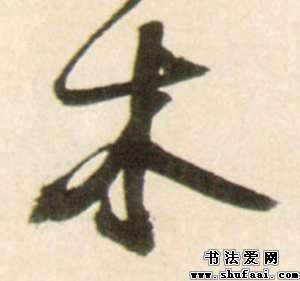 木
书法爱网
www.shufaai.com